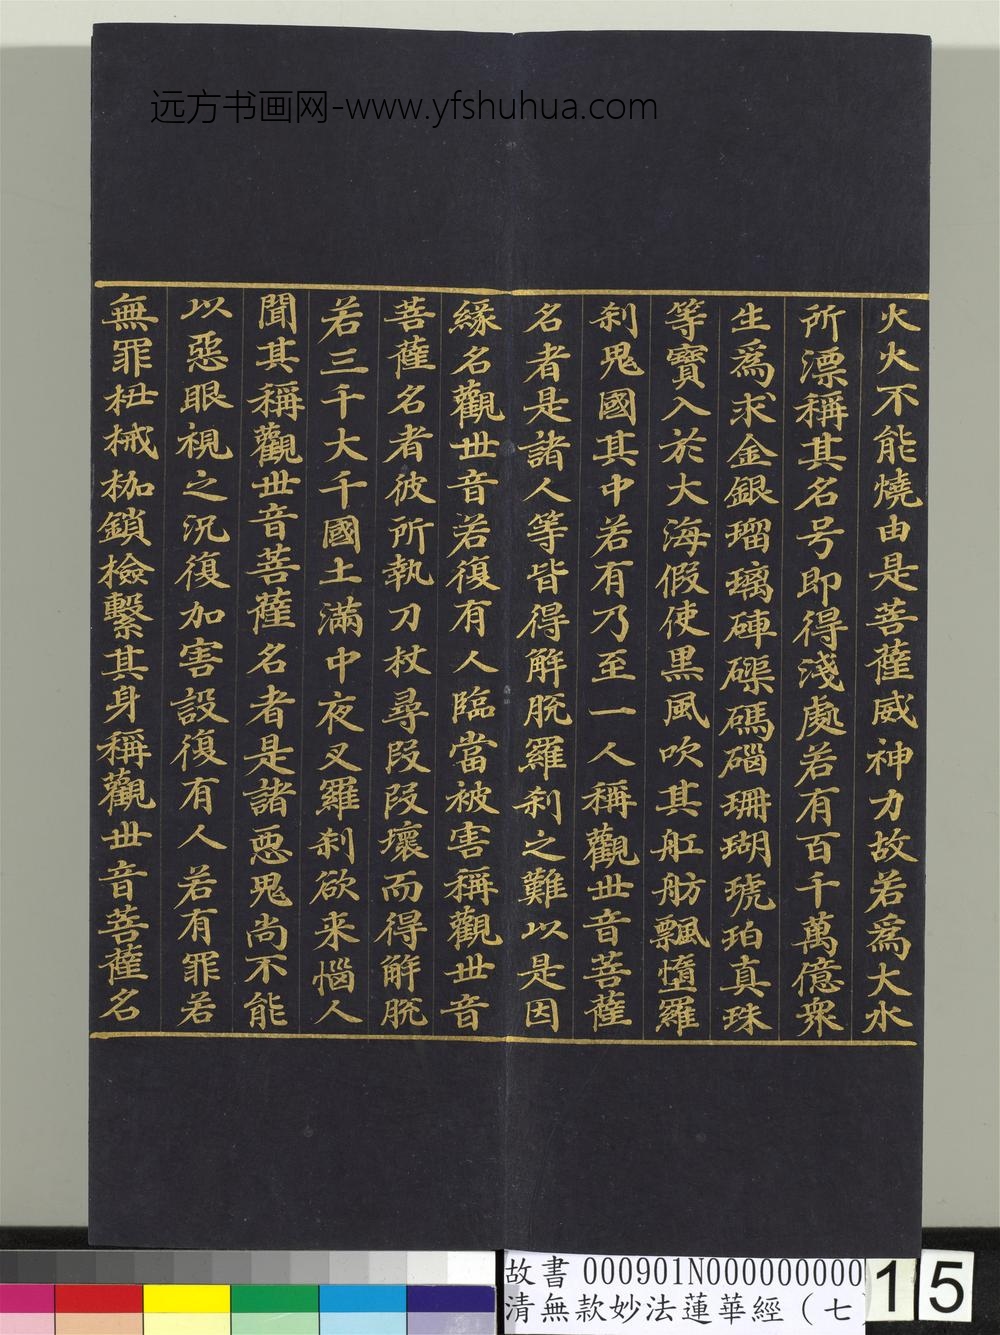 远方书画网-www.yfshuhua.com
火火不能燒由是菩薩威神力故若為大水
所漂稱其名号即得淺處若有百千萬億眾
生為求金銀瑠璃硨磲碼碯珊瑚琥珀真珠
等寶入於大海假使黑風吹其舡舫飄墮羅
刹鬼國其中若有乃至一人稱觀世音菩薩
名者是諸人等皆得解脫羅刹之難以是因
緣名觀世音若復有人臨當被害稱觀世音
菩薩名者彼所執刀杖尋段段壞而得解脫
若三千大千國土滿中夜叉羅刹欲来惱人
聞其稱觀世音菩薩名者是諸惡鬼尚不能
以惡眼視之況復加害設復有人若有罪若
無罪杻械枷鎖檢繫其身稱觀世音菩薩名
故書 000901N000000000
清無款妙法蓮華經（七）
15